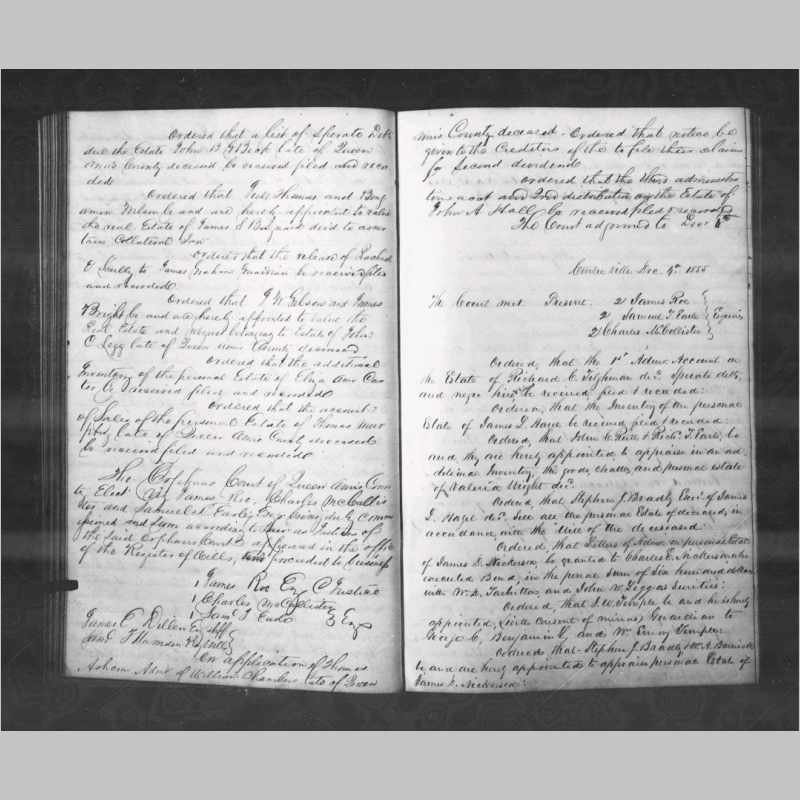 Ordered that a list of Sperate Debts
due the Estate John B. late of Queen
Anns County deceased be received filed and reco
ded
Ordered that Thomas and Benj
amin be and are hereby appointed to value
the real Estate of James decd to ascer
tain Collateral Tax
Ordered that the release of Rachael
E to James Guardian be received filed
and recorded
Ordered that J W and James
Bright be and are hereby appointed to value the
Real Estate and belonging to Estate of John
C Legg late of Queen Anns County deceased
Ordered that the additional
Inventory of the personal Estate of Eliza Ann Car
ter be received filed and recorded
Ordered that the account
of Sales of the personal Estate of Thomas Mur
phy late of Queen Anns County deceased
be received filed and recorded
The Orphans Court of Queen Anns Coun
ty Elect James Roe, Charles McCollis
ter and Samuel T Earle, Esqs being duly commi
ssioned and sworn according to law as Justices of
the said Orphans Court as appeared in the office
of the Register of Wills, proceeded to business
1 James Roe Esq C Justice
1 Charles McCollister
1 Saml T Earle } Esqs
James C
On application of Thomas
Askern Admr of William Chambers late of Queen
Anns County deceased - Ordered that notice be
given to the Creditors of the to file their claims
for Second dividend
Ordered that the third administra
tion acct and 2nd distribution on the Estate of
John A Hall be received filed & recorded
The Court adjourned to Decr 4th
Centreville Dec. 4th 1855
The Court met Present. 2 James Roe
2 Samuel T Earle } Esquires
2 Charles McCollister
Ordered, that the 1st Admr Account on
the Estate of Richard C. Tilghman decd Sperate debts,
and negro hire, be received filed & recorded:
Ordered, that the Inventory of the personal
Estate of James D. Haze be received filed & recorded:
Ordered, that John C. & Richd. T. Earle, be
and they are hereby appointed to appraise in an ad-
ditional Inventory, the goods, chattles, and personal estate
of Valeria Wright decd.
Ordered, that Stephen J. Bradly Exr. of James
D. Haze decd. Sell all the personal Estate of deceased, in
accordance with the will of the deceased:
Ordered, that Letters of Admr. on personal Estate
of James D. Nickerson, be granted to Charles E. Nickerson who
executed Bond, in the penal Sum of Six hundred dollars
with W. D. and John W. Sureties:
Ordered, that J. W. Temple be and he is hereby
appointed, (with consent of minors) Guardian to
George C. Benjamin V, and Wm. Emory Temple:
Ordered that Stephen J. Bradly & W. A.
be and are hereby appointed to appraise personal Estate of
James D. Nickerson: